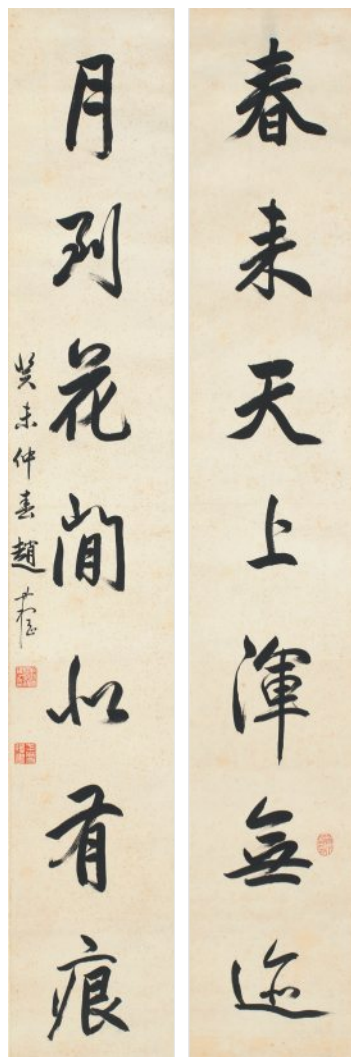 春来天上渾無迹
月到花間似有痕
癸未仲春趙